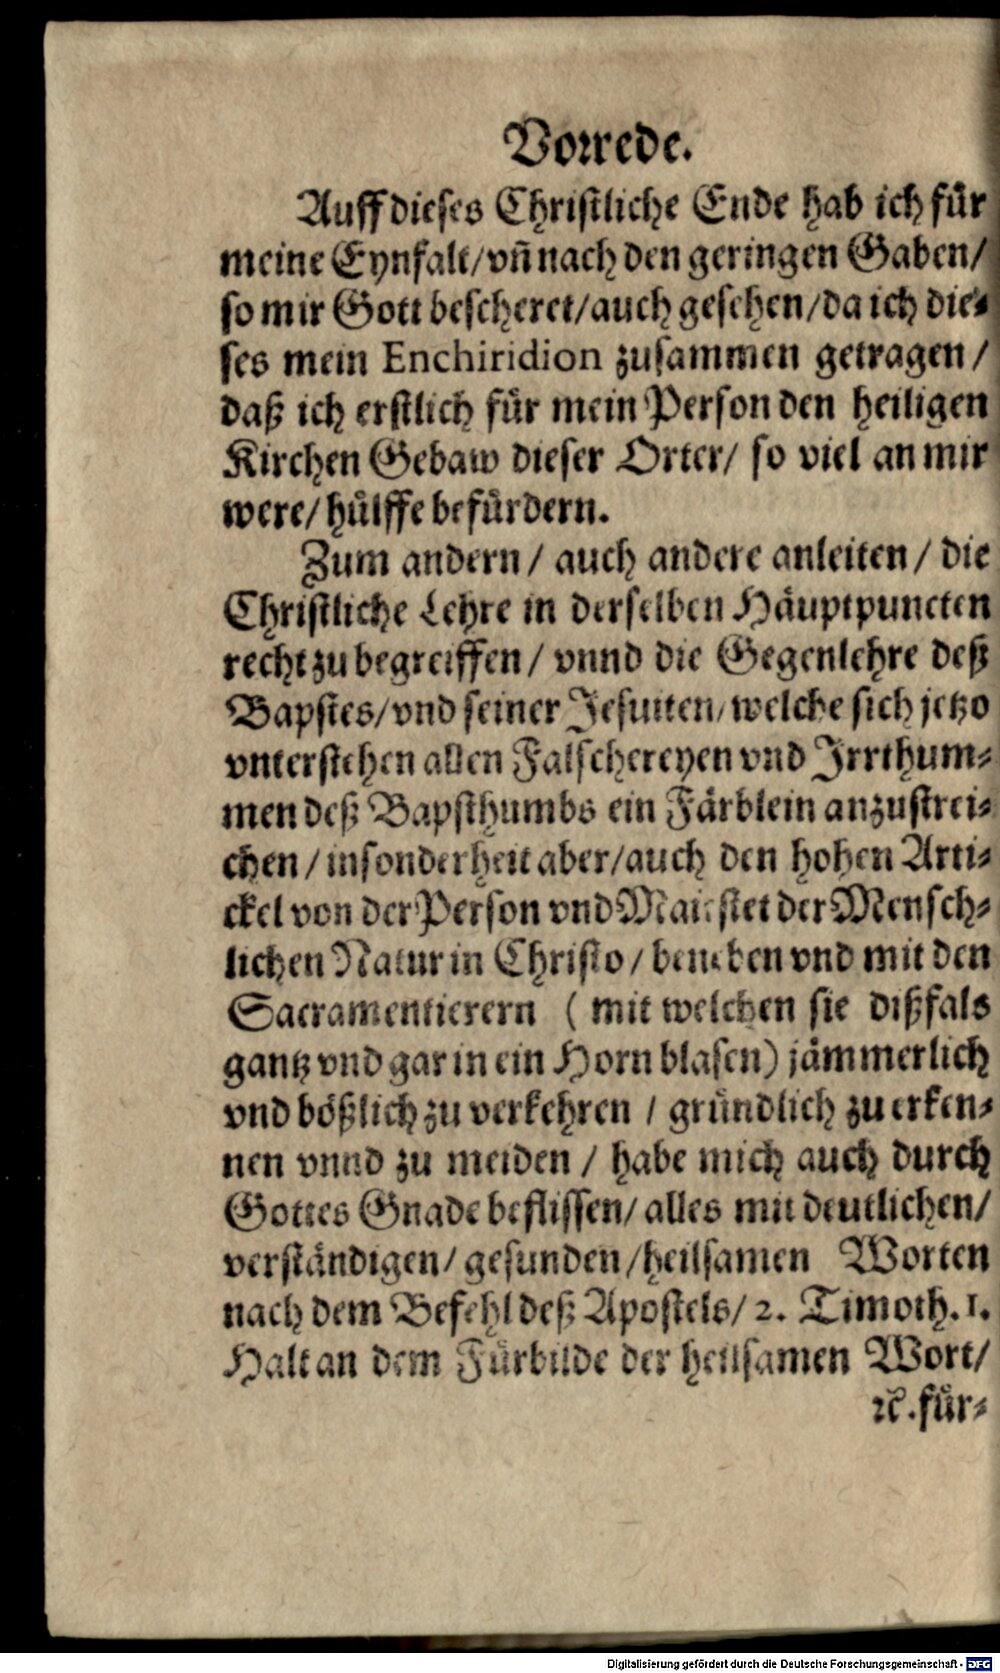 Vorrede.
Auff dieses Christliche Ende hab ich für
meine Eynfalt/ vñ nach den geringen Gaben/
so mir Gott bescheret/ auch gesehen/ da ich die-
ses mein Enchiridion zusammen getragen/
daß ich erstlich für mein Person den heiligen
Kirchen Gebaw dieser Orter/ so viel an mir
were/ hülffe befürdern.
Zum andern/ auch andere anleiten/ die
Christliche Lehre in derselben Häuptpuncten
recht zu begreiffen/ vnnd die Gegenlehre deß
Bapstes/ vnd seiner Jesuiten/ welche sich jetzo
vnterstehen allen Falschereyen vnd Jrrthum-
men deß Bapsthumbs ein Färblein anzustrei-
chen/ insonderheit aber/ auch den hohen Arti-
ckel von der Person vnd Maiestet der Mensch-
lichen Natur in Christo/ beneben vnd mit den
Sacramentierern (mit welchen sie dißfals
gantz vnd gar in ein Horn blasen) jämmerlich
vnd bößlich zu verkehren/ gründlich zu erken-
nen vnnd zu meiden/ habe mich auch durch
Gottes Gnade beflissen/ alles mit deutlichen/
verständigen/ gesunden/ heilsamen Worten
nach dem Befehl deß Apostels/ 2. Timoth. 1.
Halt an dem Fürbilde der heilsamen Wort/
ꝛc. für-
Digitalisierung gefördert durch die Deutsche Forschungsgemeinschaft - DFG